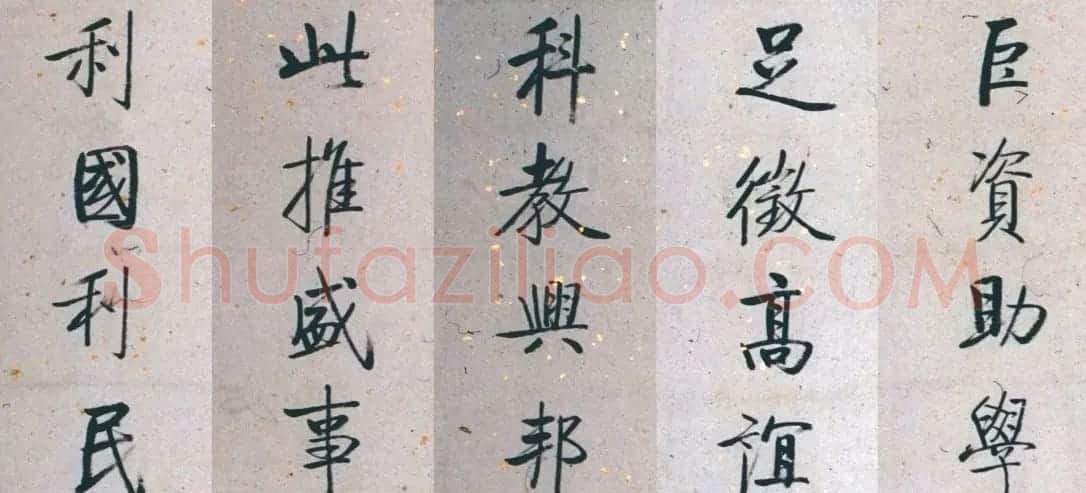 巨資助學
足徵高誼
科教興邦
此推盛事
利國利民
Shufaziliao.COM